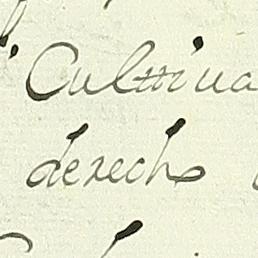 Cultiua
derecho